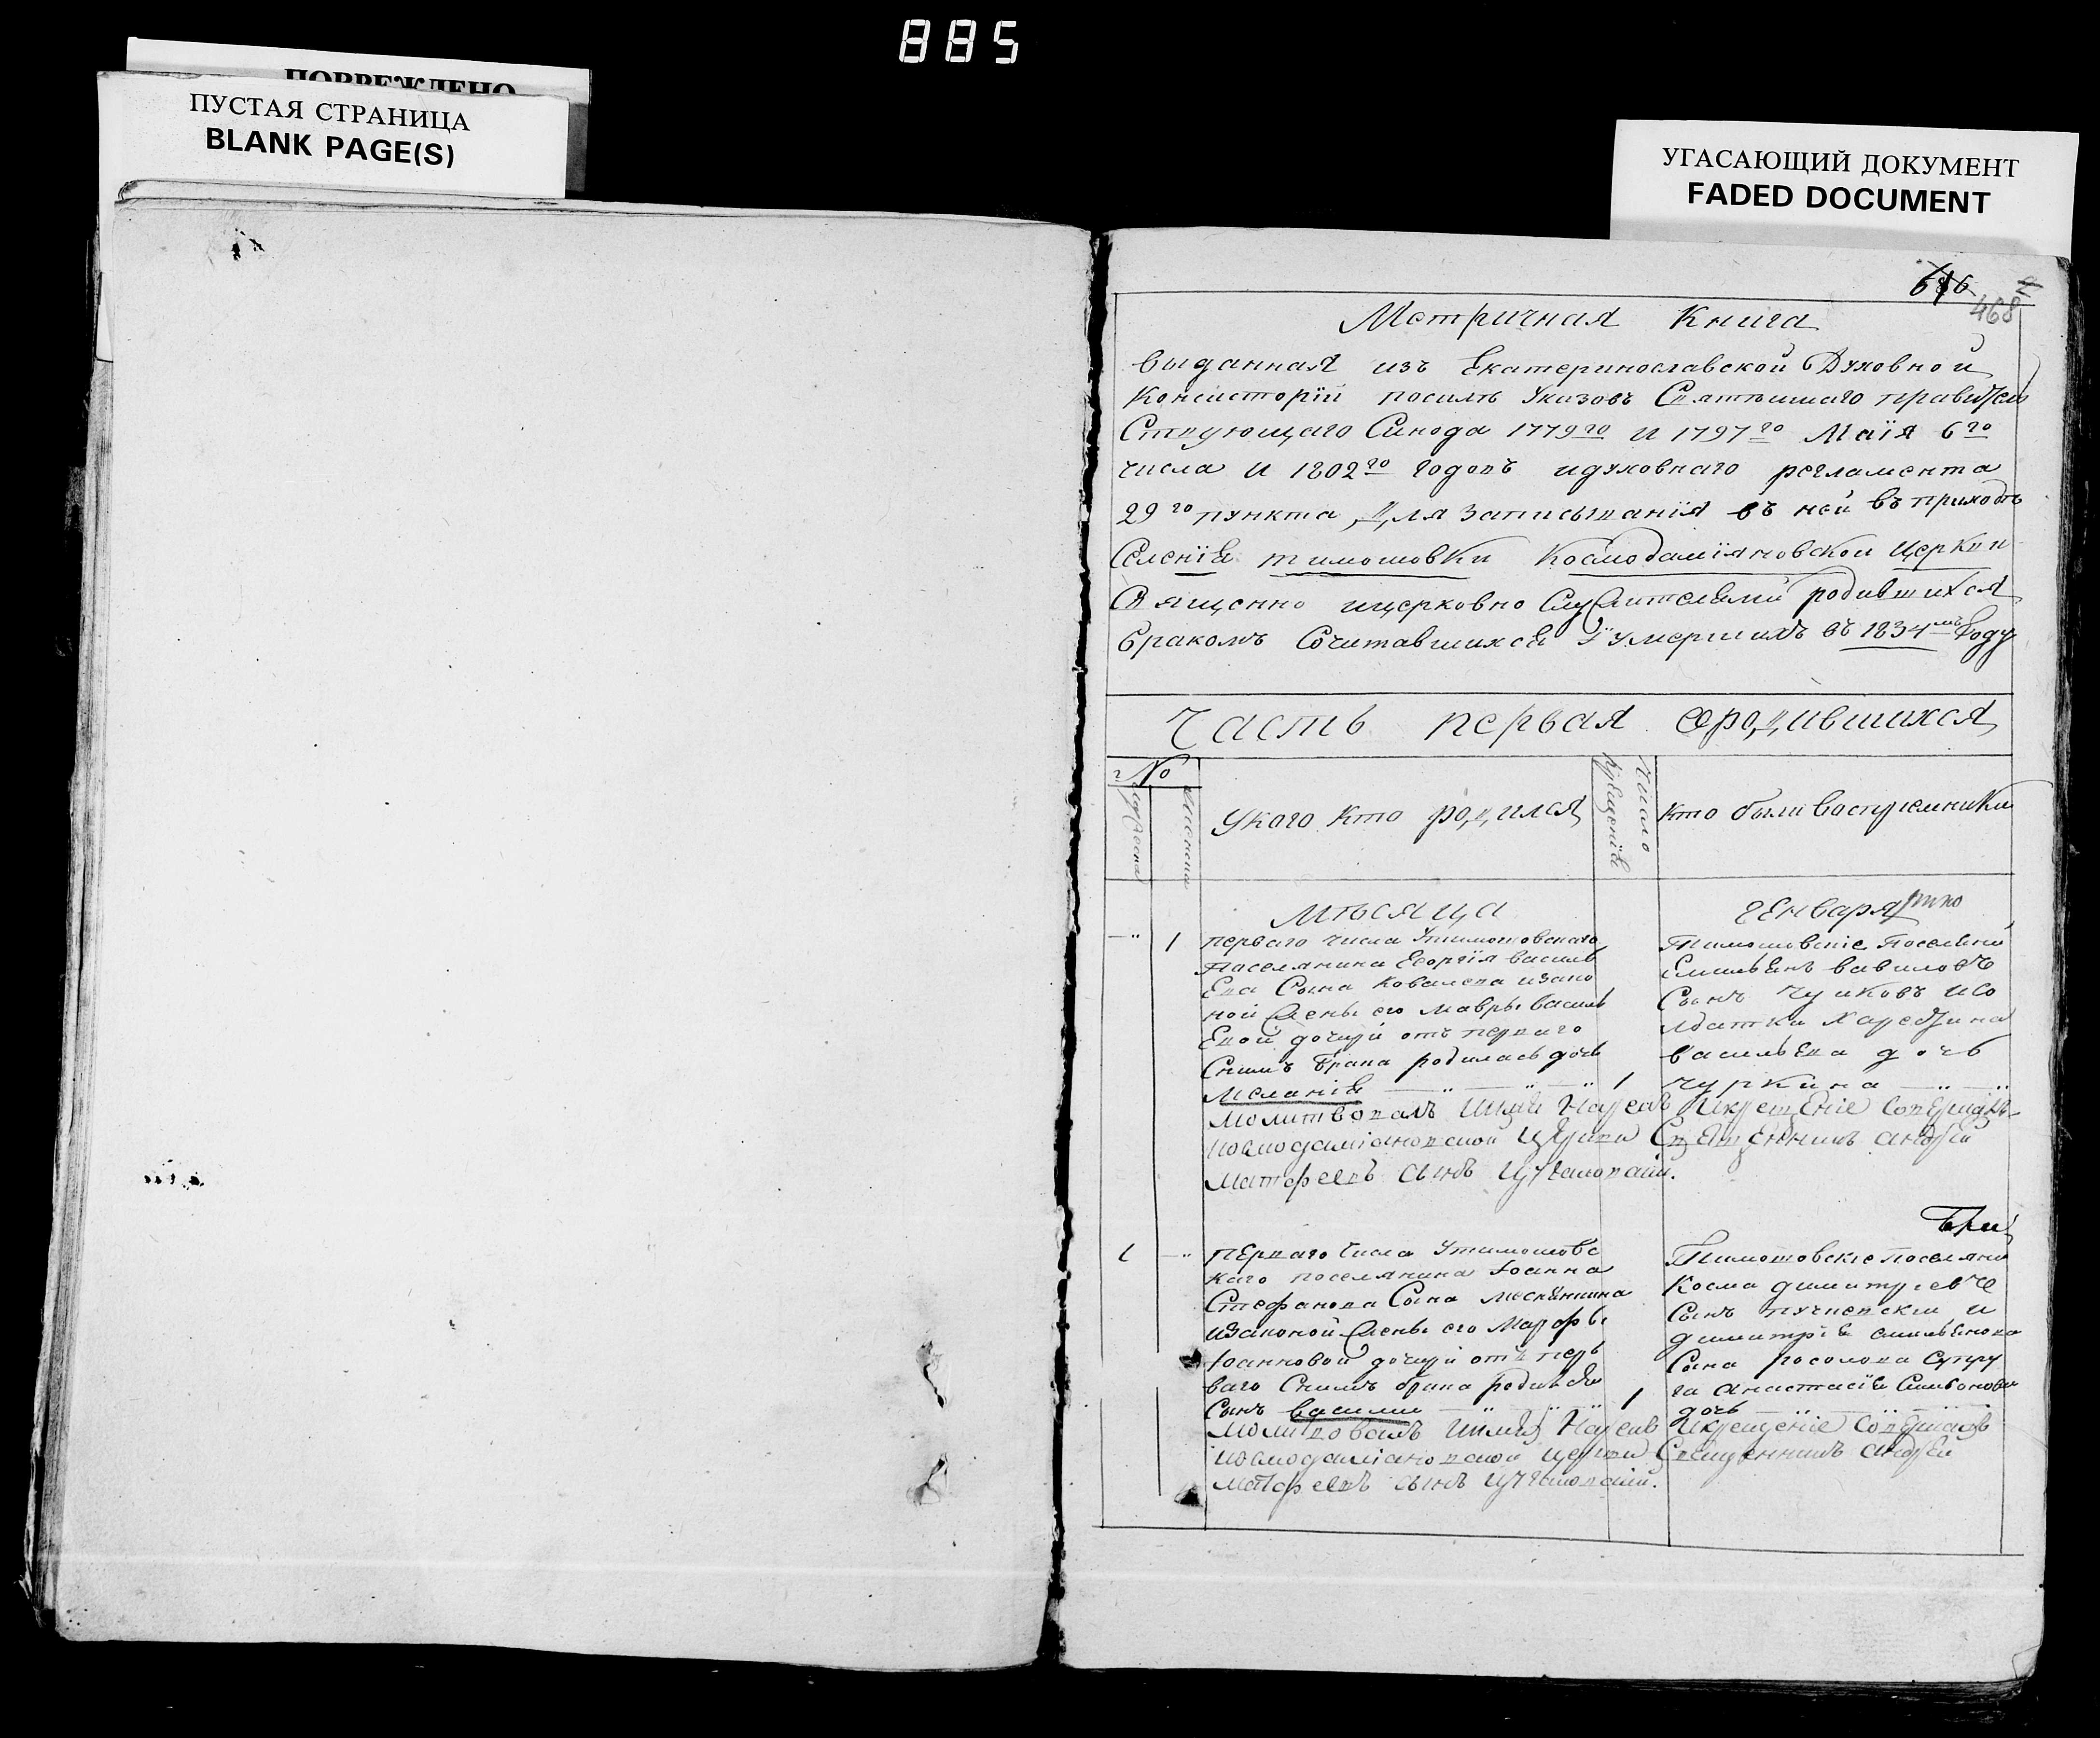 885
ПОВРЕЖДЕНО
ПУСТАЯ СТРАНИЦА
BLANK PAGE(S)
УГАСАЮЩИЙ ДОКУМЕНТ
FADED DOCUMENT
468
Метричная Книга
выданная изъ Екатеринославской Духовной
Консисторіи посилѣ Указовъ Святѣишаго правитель
Ствующаго Синода 1779го и 1797го Маія 6го
числа и 1802го годовъ идуховнаго регламента
29го пункта, для записыванія въ ней въ приходѣ
Селенія тимошовки Космодаміяновской Церкви
Священно ицерковно Служителями родившихся
бракомъ Сочитавшихся Іумершихъ въ 1834мъ Году
Часть первая ородившихся
№
мужеска
женска
Укого кто родился
Число
крещенія
кто были воспріемники
Мѣсяца
Генваря
1
перваго числа Утимошовскаго
Поселянина Георгія василь
Ева Сына Ковалева изако
ной Жены его Мавры василь
Евой дочери отъ перваго
Снимъ брака родилась дочь
Меланія 1
Тимошовскіе Поселяни
Емильянъ вавиловъ
Сынъ Чулковъ исо
лдатка
васильева дочь
Чуркина
Молитвовалъ Имя Нарекъ Икрещеніе Совершилъ
космодаміановской Церкви Священникъ андрей
Матфеевъ сынъ
Три
1
перваго Числа Утимошовс
каго поселянина Іоанна
Стефанова Сына
изаконой Жены его Марфы
Іоанновой дочери отъ пер
ваго Снимъ брака родился
Сынъ василий 1
Тимошовскіе поселяни
Косма димитріевъ
Сынъ и
димитрія емильянова
Сына росолова Супру
га анастасія Симеонова
дочь
Молитвовалъ Имя Нарекъ Икрещеніе Совершилъ
космодаміановской церкви Священникъ андрей
матфеевъ сынъ